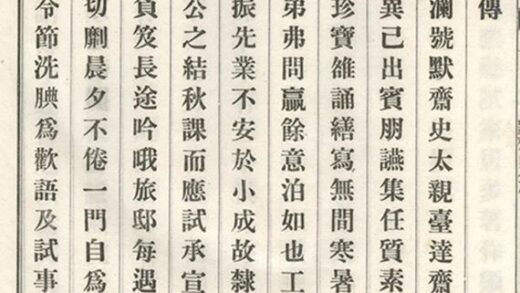 傳
瀾號默齋史太親臺達齋
異己出賓朋讌集任質素
珍寶雒誦繕寫無間寒暑
弟弗問贏餘意泊如也工
振先業不安於小成故隸
公之結秋課而應試承宣
負笈長途吟哦旅邸每遇
切劘晨夕不倦一門自為
令節洗腆為歡語及試事